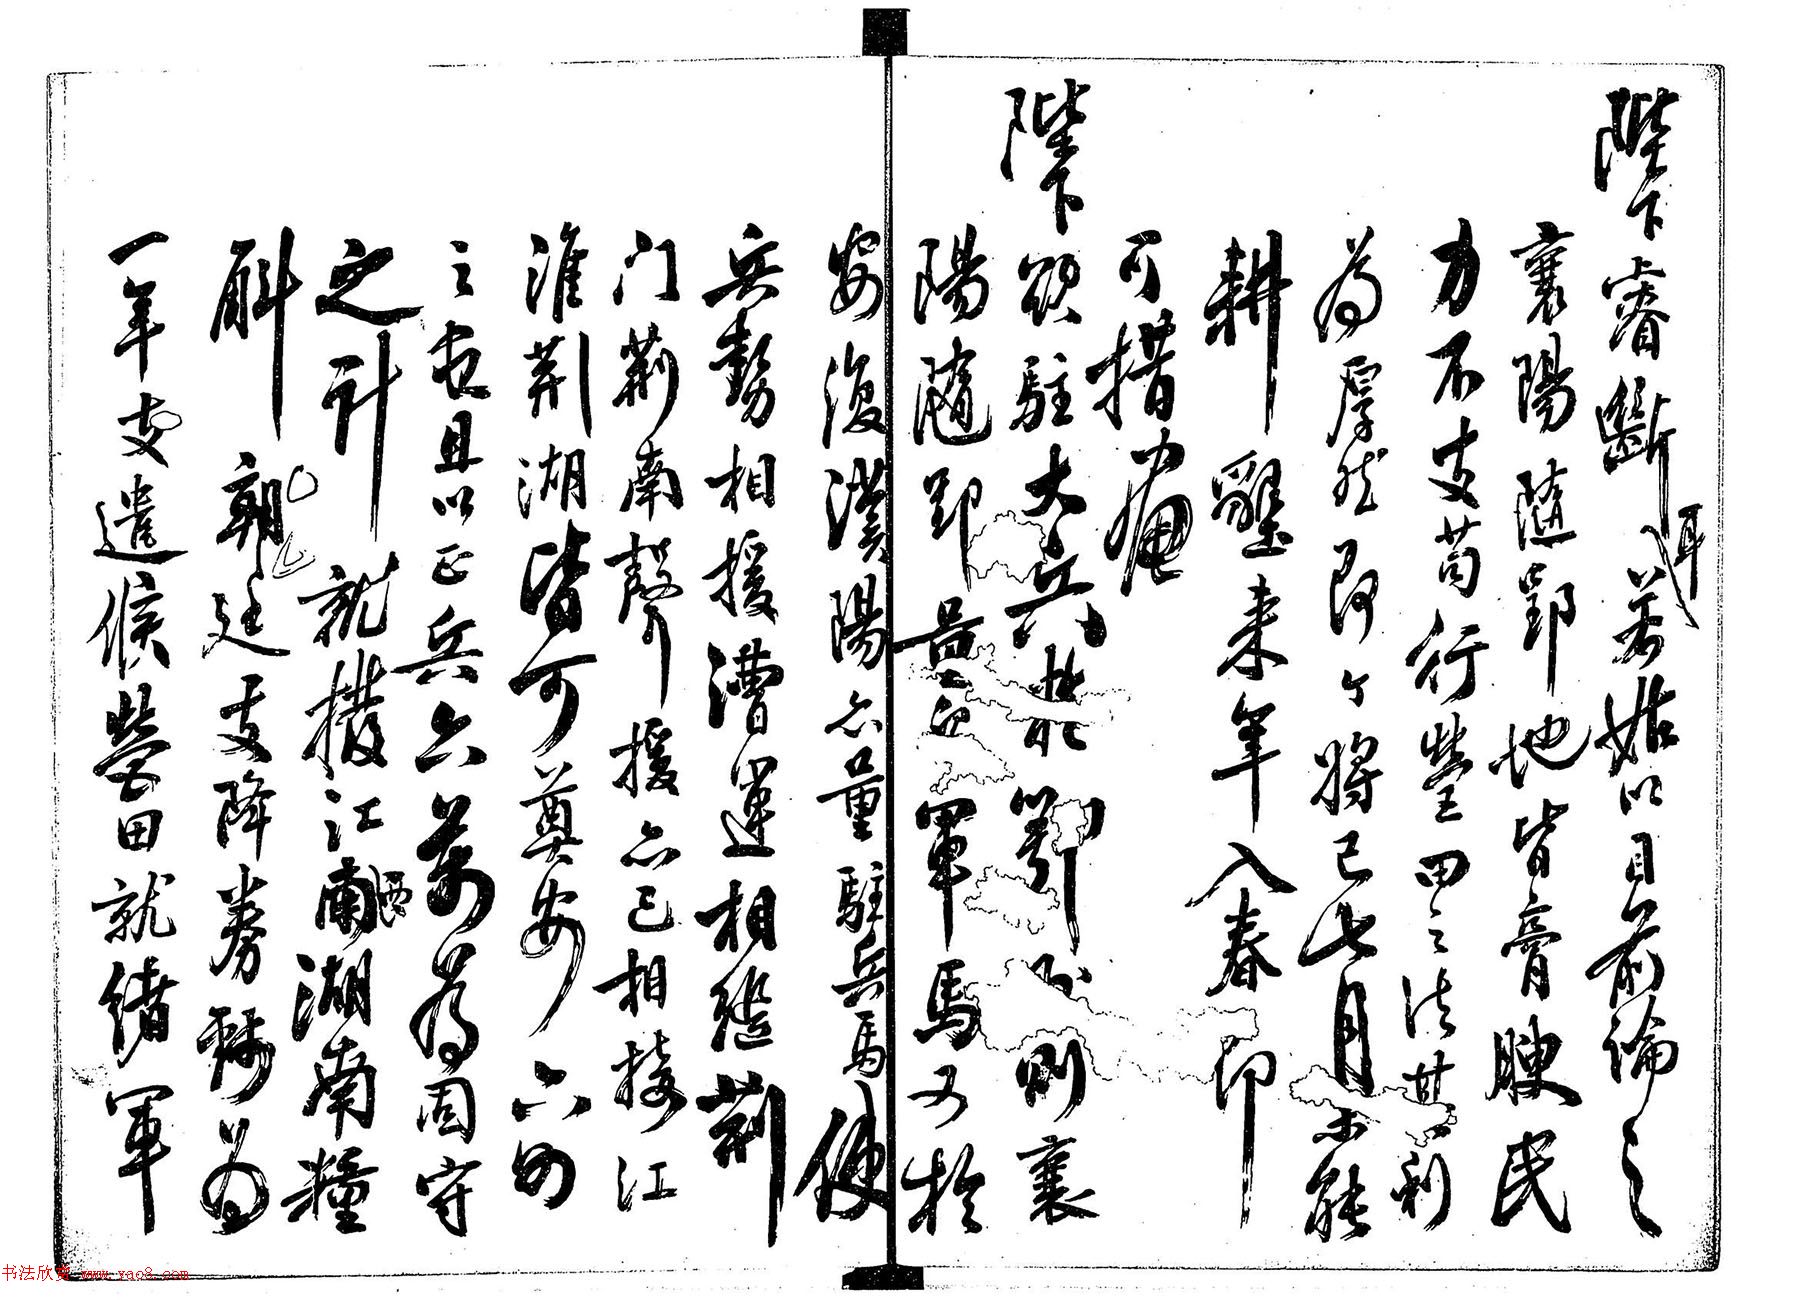 陛下睿斷耳若姑以目前論之
襄陽隨郢地皆膏腴民
力不支苟行營田之法其利
為厚然即今將已七月未能
耕墾來年入春即
可措畫
陛下欲駐大兵於鄂州則襄
陽隨郢量留軍馬又於
安復漢陽亦量駐兵馬使
兵勢相援漕運相繼荊
门荊南聲援亦已相接江
淮荊湖皆可奠安六州
之屯且以正兵六萬為固守
之計就撥江南西湖南糧
斛朝廷支降券錢為
一年支遣候營田就緒軍
书法欣赏 www.yao8.com